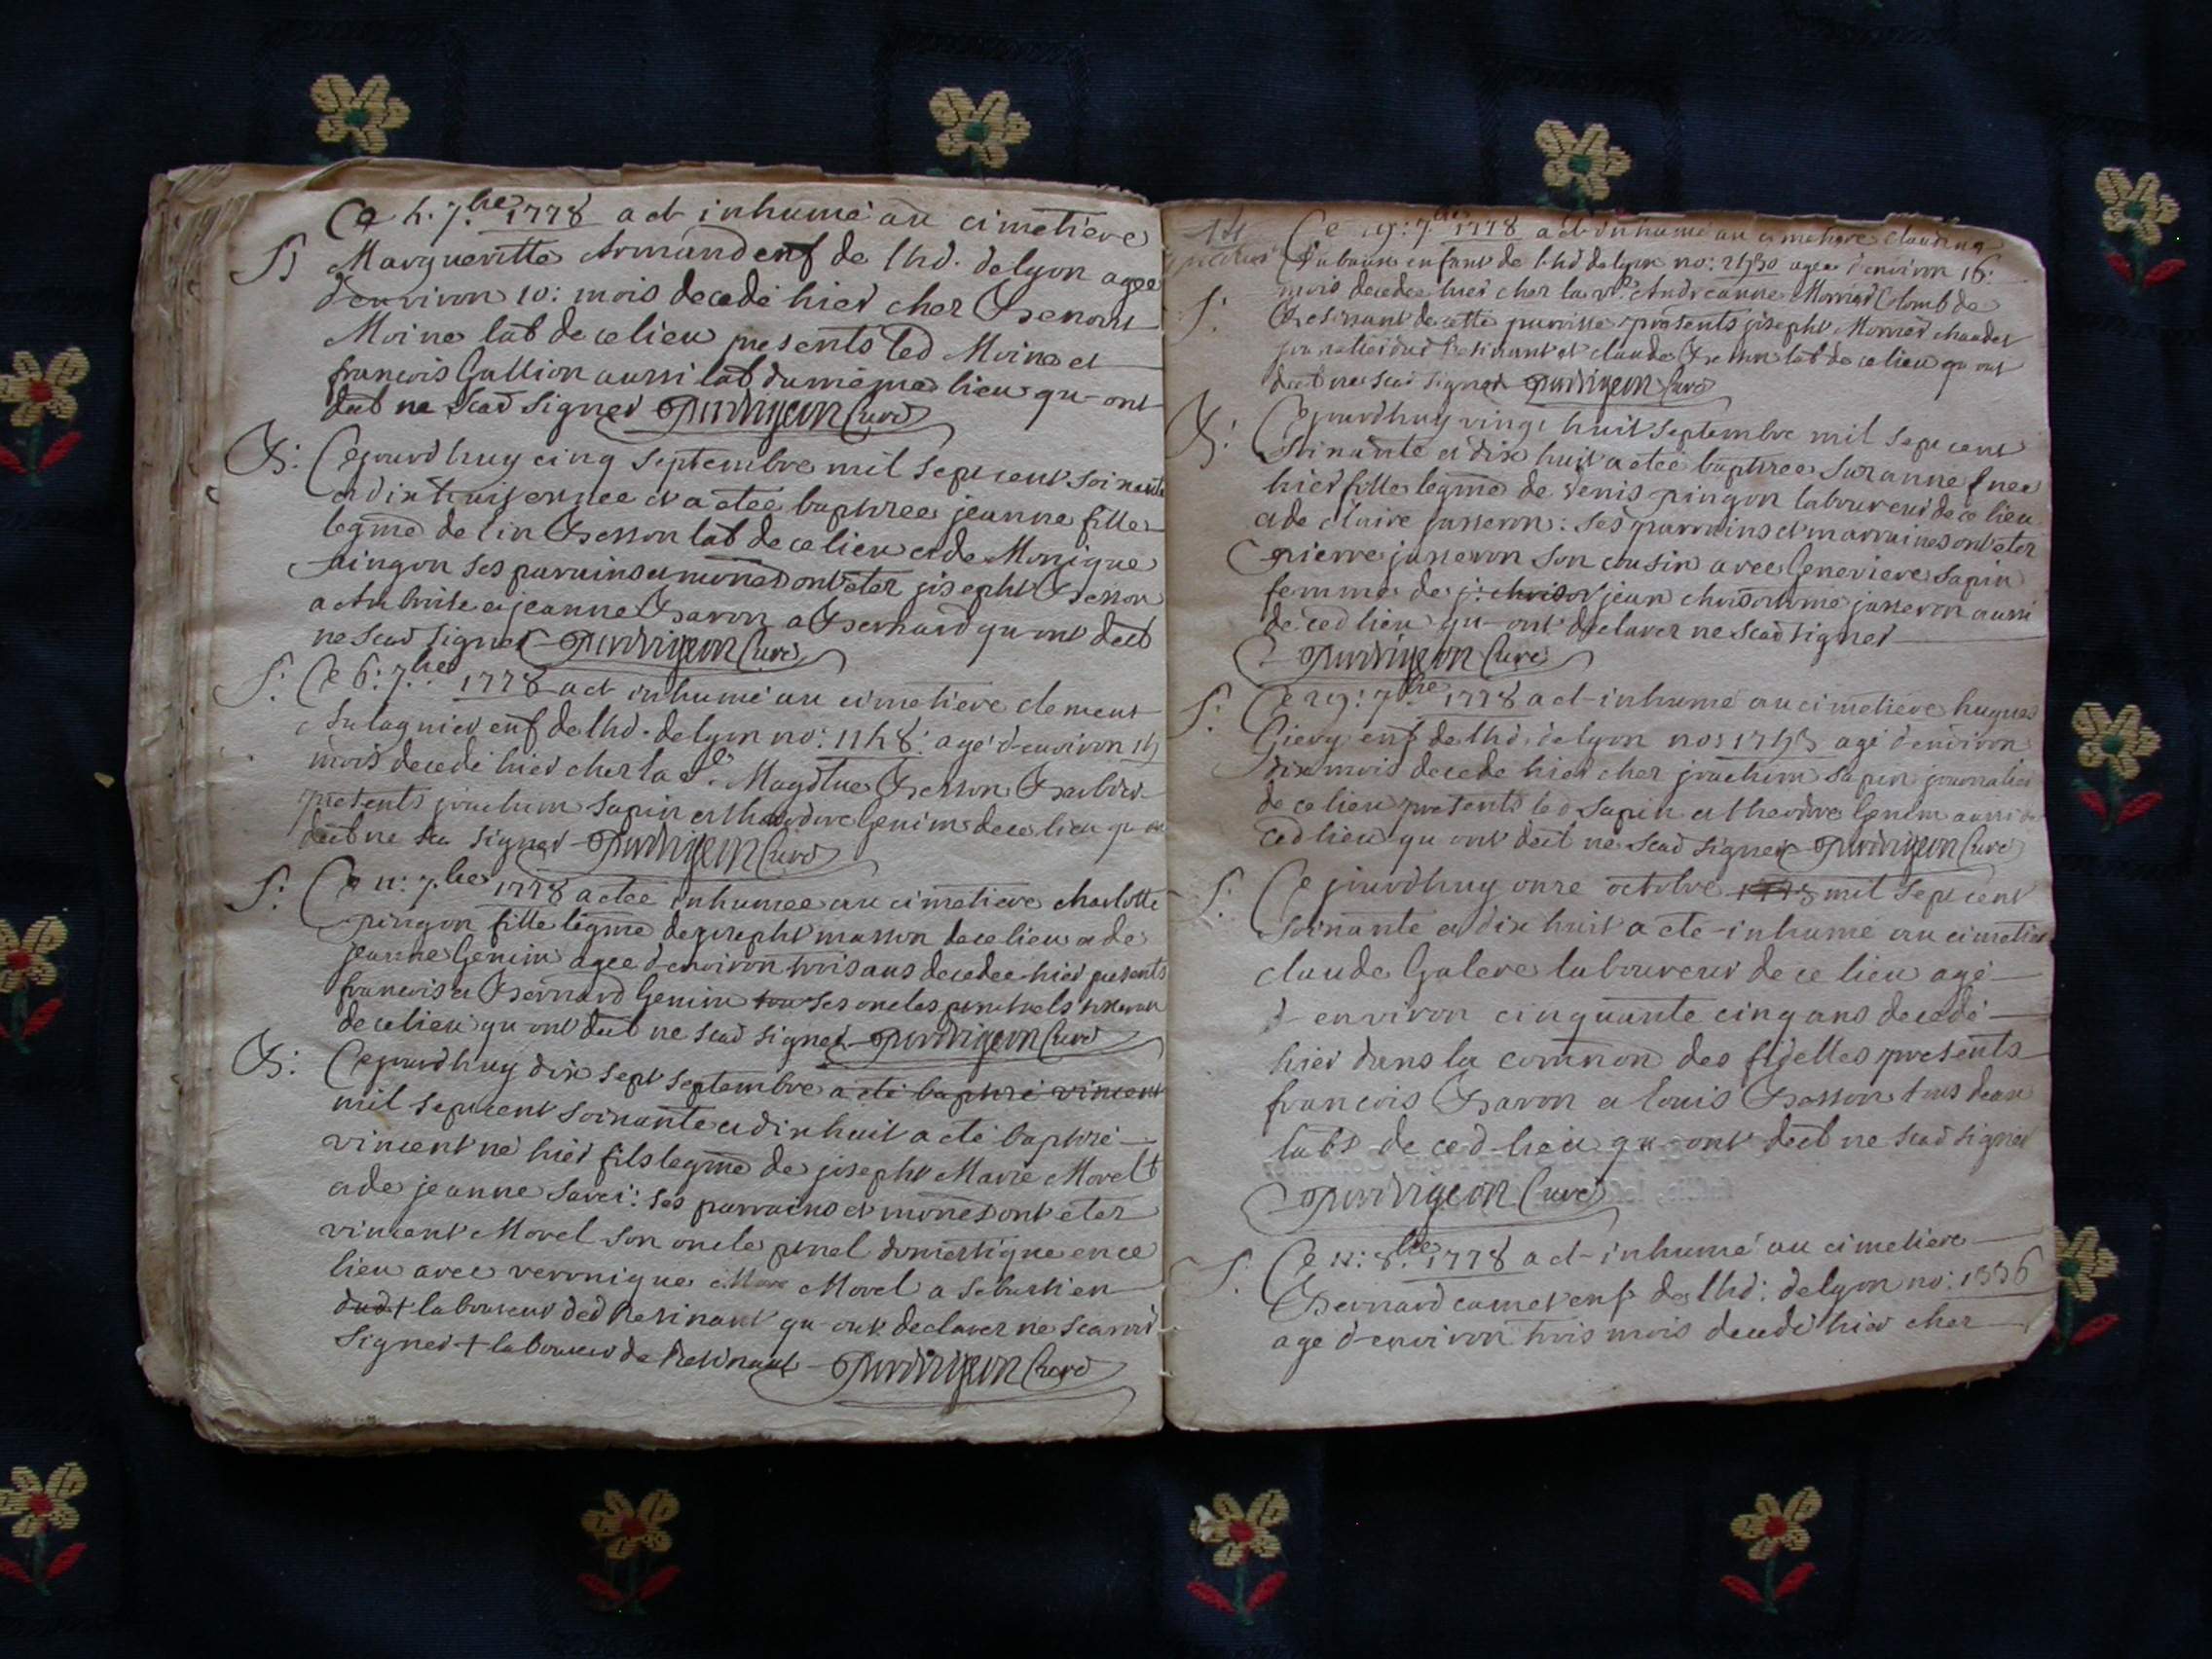 Ce 4: 7.bre 1778 a et inhumé au cimetiere
S: Margueritte Armand enf de lhd. de lyon agee
d'environ 10: mois decedé hier cher Benoist
Moine lab de ce lieu presents led Moine et
francois Gallion aussi lab du même lieu qu-ont
declt ne scad signer Purdrigeon Curé
B: Cejourdhuy cinq septembre mil sept cent soixante
et dix huit ennee et a etee baptizee jeanne fille
legme de Besson lab de ce lieu et de Monique
pingon ses parains et mones ont eter joseph Besson
a Ambroise et jeanne Baron a Bernard qu ont declt
ne scad signer Purdrigeon Curé
S: Ce 6: 7.bre 1778 a et inhumé au cimetiere clement
enf de lhd. de lyon no: 1148: agé d'environ 14
mois decedé hier cher la Magdlne Besson
presents joachim Sapin et theodore Genin de ce lieu qu
declt ne signer Purdrigeon Curé
S: Ce 11: 7.bre 1778 a etee inhumee au cimetiere charlotte
pingon fille legme de joseph masson de ce lieu et de
jeanne Genin agee d'environ trois ans decedee hier presents
francois et Bernard Genin ses oncles
de ce lieu qu ont declt ne scad signer Purdrigeon Curé
B: Cejourdhuy dix sept septembre a eté baptizé vincent
mil sept cent soixante et dix huit a eté baptizé
vincent né hier fils legme de joseph Marie Morel
et de jeanne Savei: ses parrains et mones ont eter
vincent Morel son oncle pnel domestique en ce
lieu avec veronique Morel a Sebastien
dud + laboureur ded Resinant qu-ont declarer ne scavoir
signer + laboureur de Resinant Purdrigeon Curé
14
Ce 19: 7.bre 1778 a et inhumé au cimetiere claudine
Dubaux enfant de lhd de lyon no: 2430 agee d'environ 16:
mois decedee hier cher la ve Andreanne Mornier Colomb de
S: Resinant de cette paroisse presents joseph Mornier
et claude lab de ce lieu qu ont
declt ne scad signer Purdrigeon Curé
B: Cejourdhuy vingt huit septembre mil sept cent
soixante et dix huit a etee baptizee Suzanne f nee
hier fille legme de Denis pingon laboureur de ce lieu
et de claire jasseron: ses parrains et marraines ont eter
pierre jasseron son cousin avec Genevieve Sapin
femme de jean chrisostome jasseron aussi
de ced lieu qu-ont declarer ne scad signer
Purdrigeon Curé
S: Ce 29: 7.bre 1778 a et-inhumé au cimetiere hugues
Giery enf de lhd: de lyon no: 1743 agé d'environ
dix mois decedé hier cher joachim Sapin journalier
de ce lieu presents led Sapin et theodore Genin aussi de
ced lieu qu ont declt ne scad signer Purdrigeon Curé
S: Cejourdhuy onze octobre 1778 mil sept cent
soixante et dix huit a eté-inhumé au cimetiere
claude Galere laboureur de ce lieu agé
d-environ cinquante cinq ans decedé
hier dans la common des fidelles presents
francois Baron et louis Bosson tous deux
labs de ced-lieu qu-ont declt ne scad signer
Purdrigeon Curé
S: Ce 12: 8.bre 1778 a et-inhumé au cimetiere
Bernard camet enf de lhd: de lyon no: 1336
age d-environ trois mois decedé hier cher